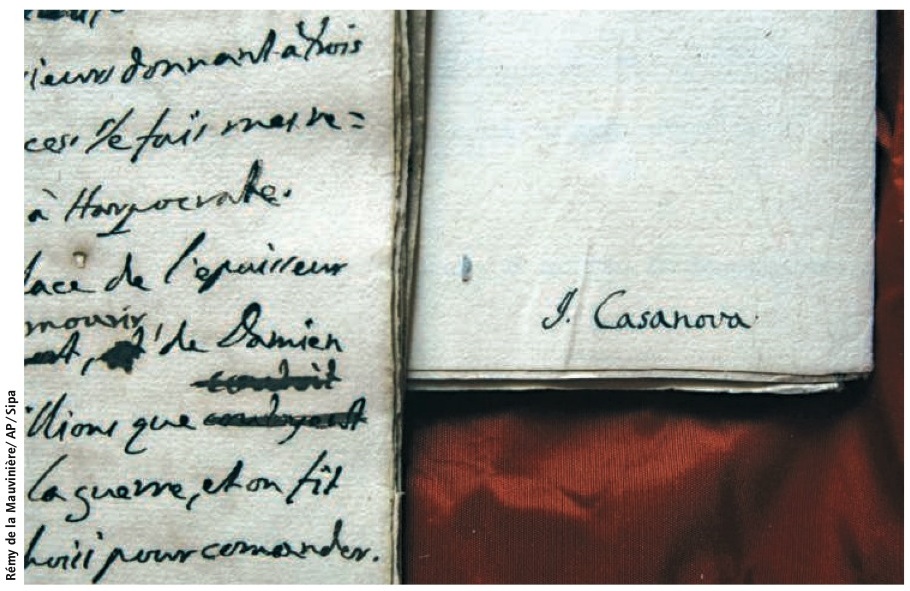 ieurs donnant à trois
ces. Je fais mes re=
à Harpocrate.
lace de l'epaisseur
mourir
de Damien
llions que
la guerre, et on fit
hoisi pour comander.
J. Casanova
Rémy de la Mauvinière/ AP/ Sipa